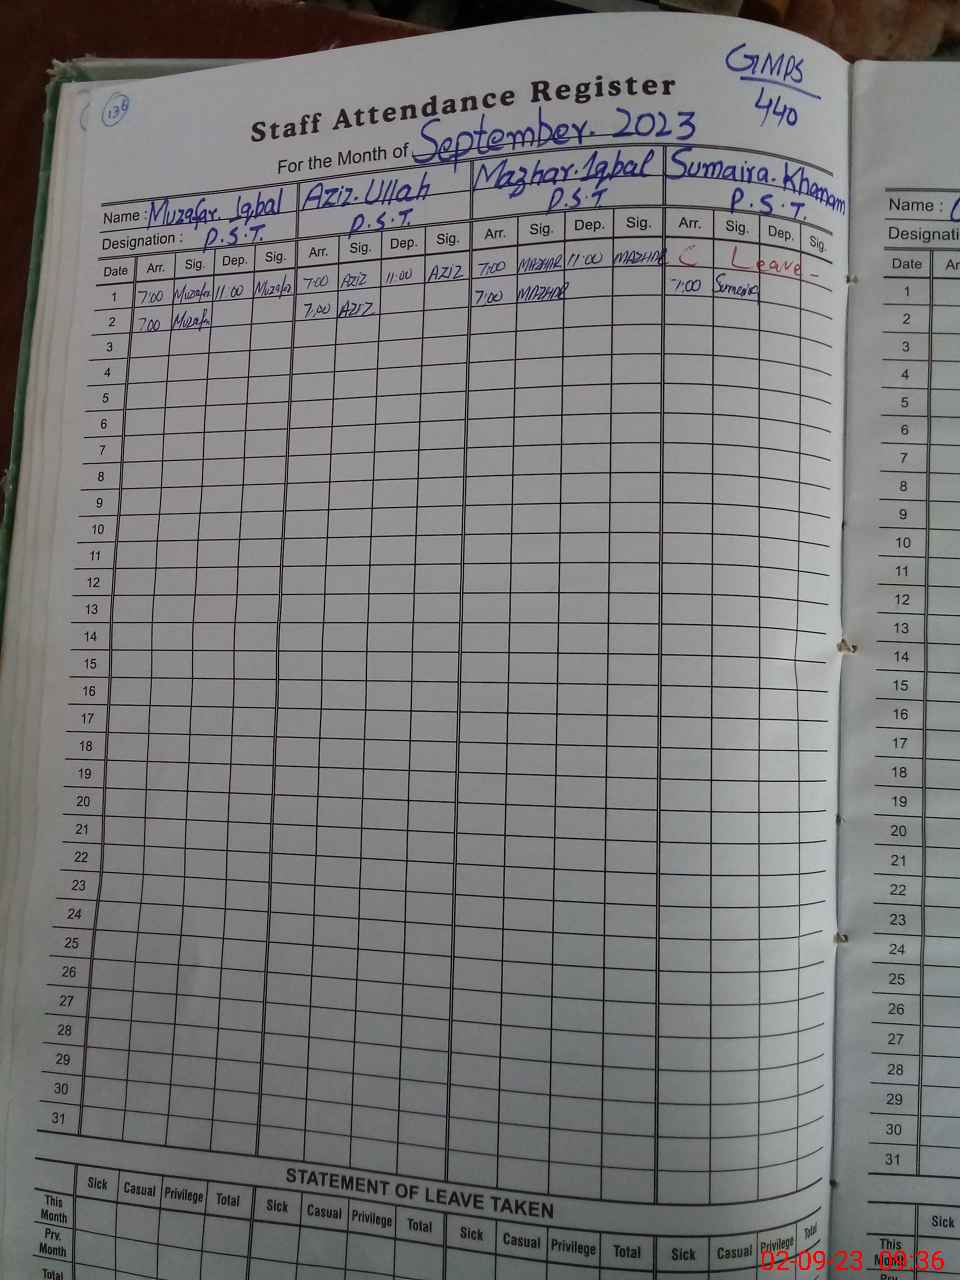 136
GMPS
440
Staff Attendance Register
For the Month of September. 2023
Name : Muzafar. Iqbal Aziz. Ullah Mazhar. Iqbal Sumaira. Khanam
Designation : P.S.T. P.S.T. P.S.T P.S.T.
Date Arr. Sig. Dep. Sig. Arr. Sig. Dep. Sig. Arr. Sig. Dep. Sig. Arr. Sig. Dep. Sig.
1 7:00 Muzafar 11:00 Muzafar 7:00 AZIZ 11:00 AZIZ 7:00 MAZHAR 11:00 MAZHAR C Leave -
2 7:00 Muzafar 7:00 AZIZ 7:00 MAZHAR 7:00 Sumaira
3
4
5
6
7
8
9
10
11
12
13
14
15
16
17
18
19
20
21
22
23
24
25
26
27
28
29
30
31
STATEMENT OF LEAVE TAKEN
Sick Casual Privilege Total Sick Casual Privilege Total Sick Casual Privilege Total Sick Casual Privilege Total
This Month
Prv. Month
Total
Name :
Date
1
2
3
4
5
6
7
8
9
10
11
12
13
14
15
16
17
18
19
20
21
22
23
24
25
26
27
28
29
30
31
Sick
This
02-09-23 09:36